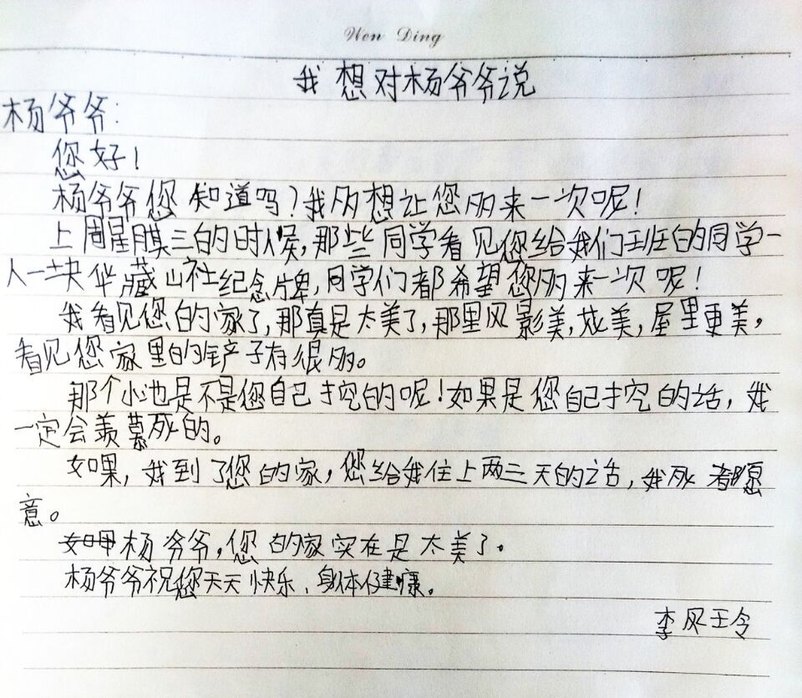 Wen Ding
我想对杨爷爷说
杨爷爷:
您好!
杨爷爷您知道吗?我多想让您多来一次呢!
上周星期三的时候,那些同学看见您给我们班的同学一
人一块华藏山社纪念牌,同学们都希望您多来一次呢!
我看见您的家了,那真是太美了,那里风景美,花美,屋里更美,
看见您家里的铲子有很多。
那个心也是不是您自己挖的呢!如果是您自己挖的话,我
一定会羡慕死的。
如果,我到了您的家,您给我住上两三天的话,我死都愿
意。
杨爷爷,您的家实在是太美了。
杨爷爷祝您天天快乐、身体健康。
李风玲